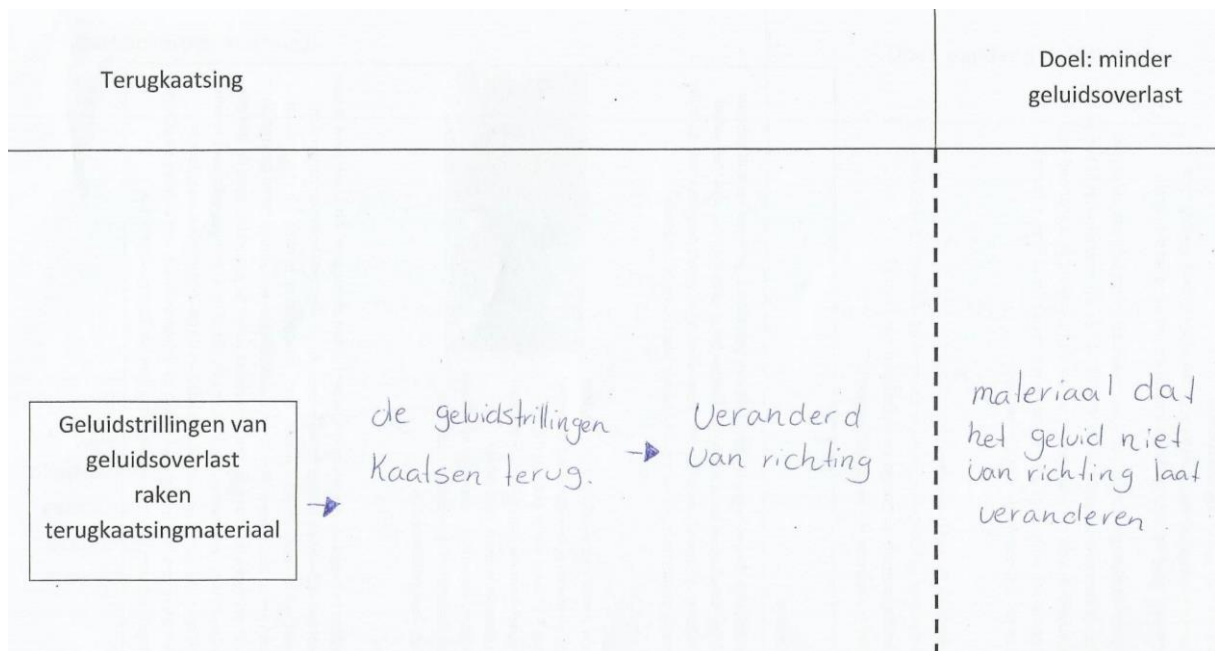 Terugkaatsing
Doel: minder
geluidsoverlast
Geluidstrillingen van
geluidsoverlast
raken
terugkaatsingmateriaal
de geluidstrillingen
Kaatsen terug.
Veranderd
van richting
materiaal dat
het geluid niet
van richting laat
veranderen